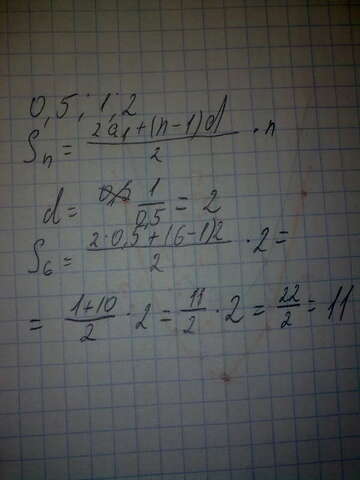 0,5; 1; 2
Sₙ = (2a₁+(n-1)d)/2 · n
d = 1/0,5 = 2
S₆ = (2·0,5+(6-1)2)/2 · 2 =
= (1+10)/2 · 2 = 11/2 · 2 = 22/2 = 11